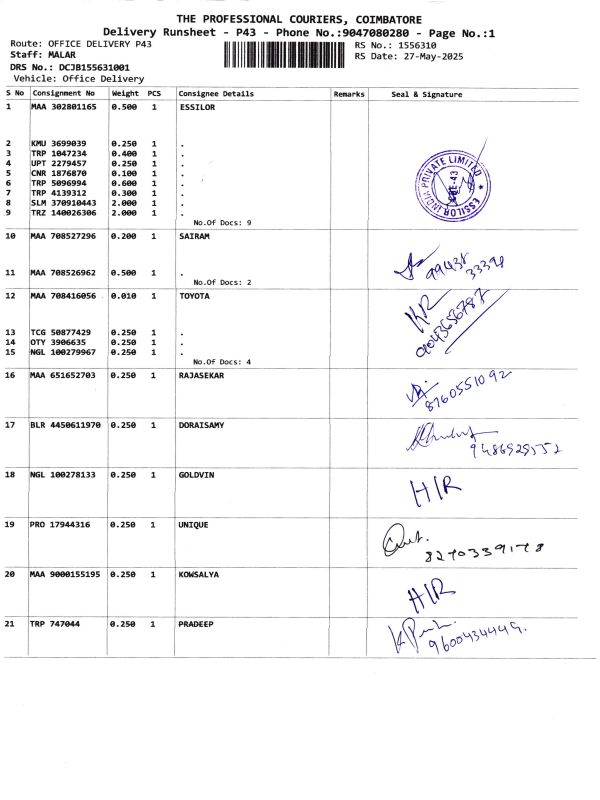 THE PROFESSIONAL COURIERS, COIMBATORE
Delivery Runsheet - P43 - Phone No.:9047080280 - Page No.:1
Route: OFFICE DELIVERY P43
Staff: MALAR
DRS No.: DCJB155631001
Vehicle: Office Delivery
RS No.: 1556310
RS Date: 27-May-2025
S No Consignment No Weight PCS Consignee Details Remarks Seal & Signature
1 MAA 302801165 0.500 1 ESSILOR
2 KMU 3699039 0.250 1 .
3 TRP 1047234 0.400 1 .
4 UPT 2279457 0.250 1 .
5 CNR 1876870 0.100 1 .
6 TRP 5096994 0.600 1 .
7 TRP 4139312 0.300 1 .
8 SLM 370910443 2.000 1 .
9 TRZ 140026306 2.000 1 .
No.Of Docs: 9
ESSILOR INDIA PRIVATE LIMITED
10 MAA 708527296 0.200 1 SAIRAM
11 MAA 708526962 0.500 1 .
No.Of Docs: 2
99438
33394
12 MAA 708416056 0.010 1 TOYOTA
13 TCG 50877429 0.250 1 .
14 OTY 3906635 0.250 1 .
15 NGL 100279967 0.250 1 .
No.Of Docs: 4
KR
9043656787
16 MAA 651652703 0.250 1 RAJASEKAR
8760551092
17 BLR 4450611970 0.250 1 DORAISAMY
18 NGL 100278133 0.250 1 GOLDVIN
H/R
19 PRO 17944316 0.250 1 UNIQUE
8270339178
20 MAA 9000155195 0.250 1 KOWSALYA
H/R
21 TRP 747044 0.250 1 PRADEEP
9600434449.